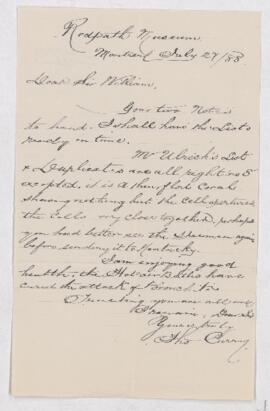 Redpath Museum
Montreal July 27/88
Dear Sir William,
Your two Notes
to hand. I shall have the Lists
ready on time.
Mr Ulrich's List
& Duplicates are all right. No 5
excepted, it is a thin flat Coral
showing nothing but the Cell apertures
the Cells very close together, perhaps
you had better see the Specimen again
before sending it to Kentucky.
I am enjoying good
health, the Hot Sea Baths have
cured the attack of Bronchitis
Trusting you are all well
I remain, Dear Sir
Yours truly
Tho Curry